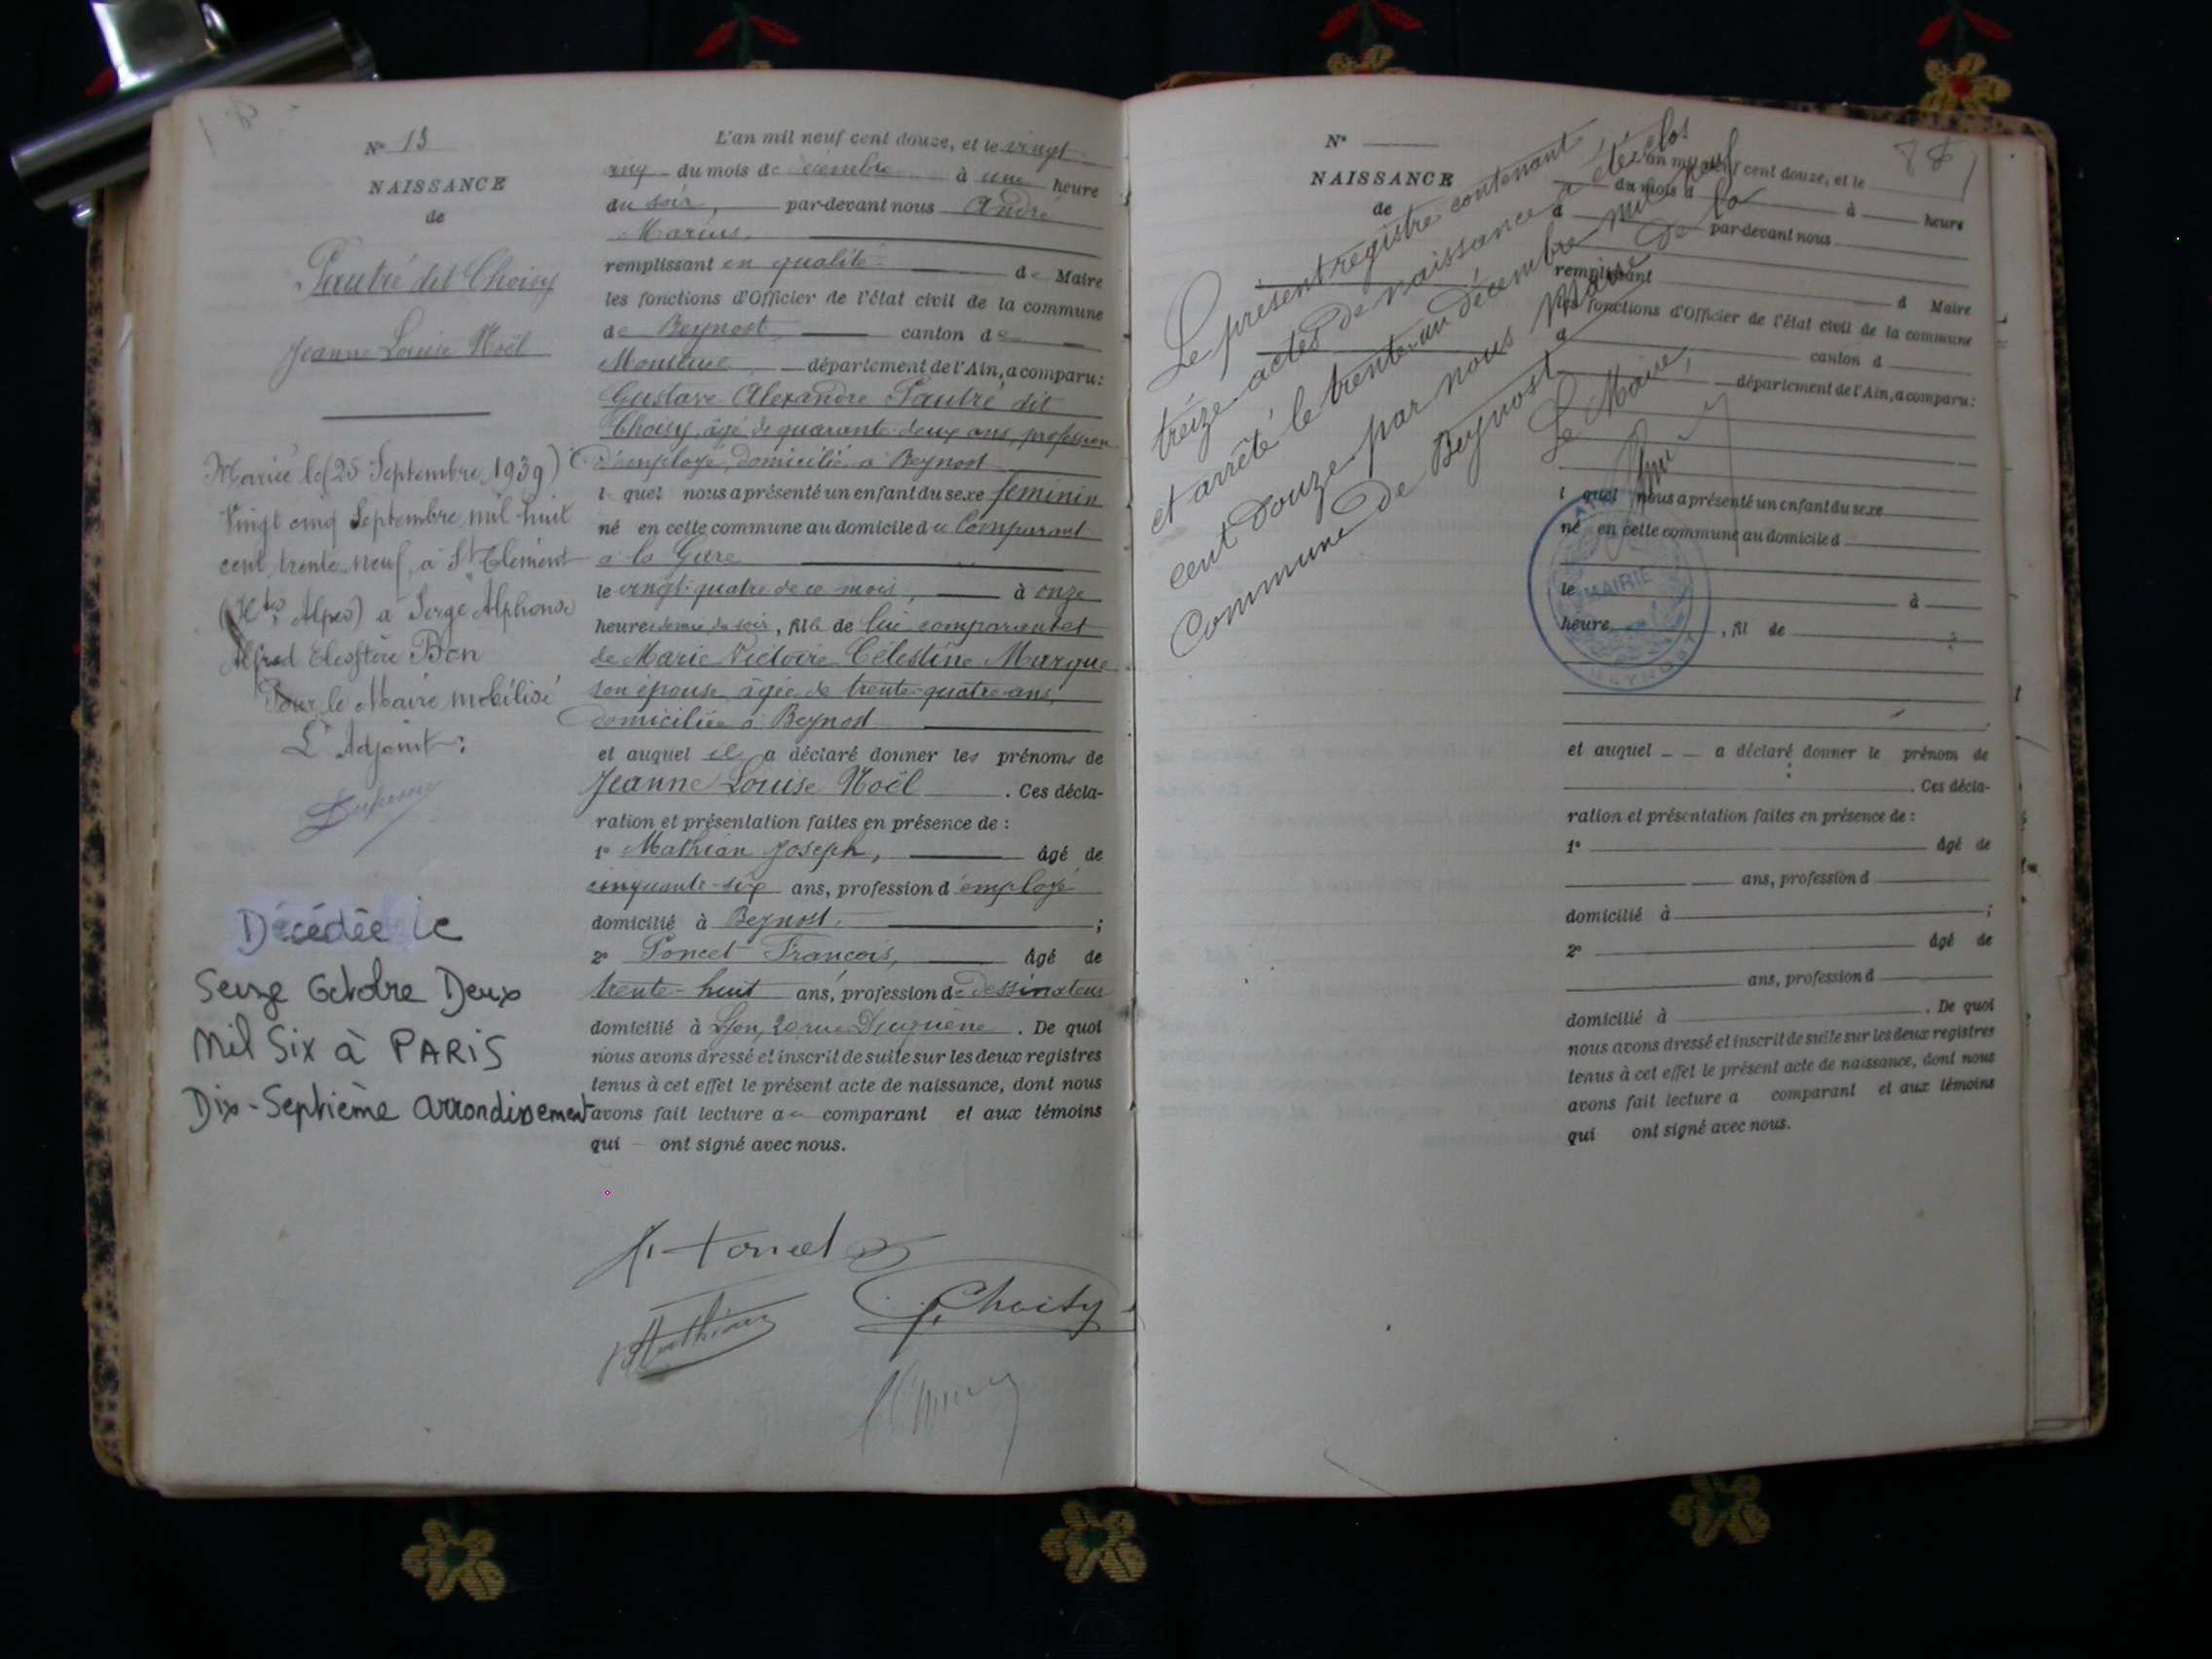 N° 13
NAISSANCE
de
Pautré dit Choisy
Jeanne Louise Noël
Mariée le (25 Septembre 1939)
Vingt cinq Septembre mil huit
cent trente neuf, à St Clément
(Htes Alpes) à Serge Alphonse
Alfred Bon
Pour le Maire mobilisé
L'Adjoint :
Décédée le
Seize Octobre Deux
Mil Six à PARIS
Dix-Septième arrondissement
L'an mil neuf cent douze, et le vingt
cinq du mois de décembre à une heure
du soir, par-devant nous André
Marius,
remplissant en qualité de Maire
les fonctions d'Officier de l'état civil de la commune
de Beynost canton de
Montluel, département de l'Ain, a comparu :
Gustave Alexandre Pautré dit
Choisy, âgé de quarante-deux ans, profession
d'employé, domicilié à Beynost
l quel nous a présenté un enfant du sexe féminin
né en cette commune au domicile du Comparant
à la Gare
le vingt-quatre de ce mois, à onze
heures demie du soir, fille de lui comparant et
de Marie Victoire Célestine Marque
son épouse, âgée de trente-quatre ans,
domiciliée à Beynost
et auquel il a déclaré donner les prénoms de
Jeanne Louise Noël . Ces décla-
ration et présentation faites en présence de :
1° Mathian Joseph, âgé de
cinquante-six ans, profession d'employé
domicilié à Beynost. ;
2° Poncet François, âgé de
trente-huit ans, profession de dessinateur
domicilié à Lyon, 20 rue Duquène . De quoi
nous avons dressé et inscrit de suite sur les deux registres
tenus à cet effet le présent acte de naissance, dont nous
avons fait lecture au comparant et aux témoins
qui ont signé avec nous.
Choisy
88
N°
NAISSANCE
de
Le présent registre contenant
treize actes de naissance a été clos
et arrêté le trente-un décembre mil neuf
cent douze par nous Maire de la
Commune de Beynost
Le Maire,
L'an mil neuf cent douze, et le
du mois d à heure
d par-devant nous
remplissant d Maire
les fonctions d'Officier de l'état civil de la commune
d canton d
département de l'Ain, a comparu :
l quel nous a présenté un enfant du sexe
né en cette commune au domicile d
MAIRIE
BEYNOST
le à
heure , fil de
et auquel a déclaré donner le prénom de
. Ces décla-
ration et présentation faites en présence de :
1° âgé de
ans, profession d
domicilié à ;
2° âgé de
ans, profession d
domicilié à . De quoi
nous avons dressé et inscrit de suite sur les deux registres
tenus à cet effet le présent acte de naissance, dont nous
avons fait lecture a comparant et aux témoins
qui ont signé avec nous.